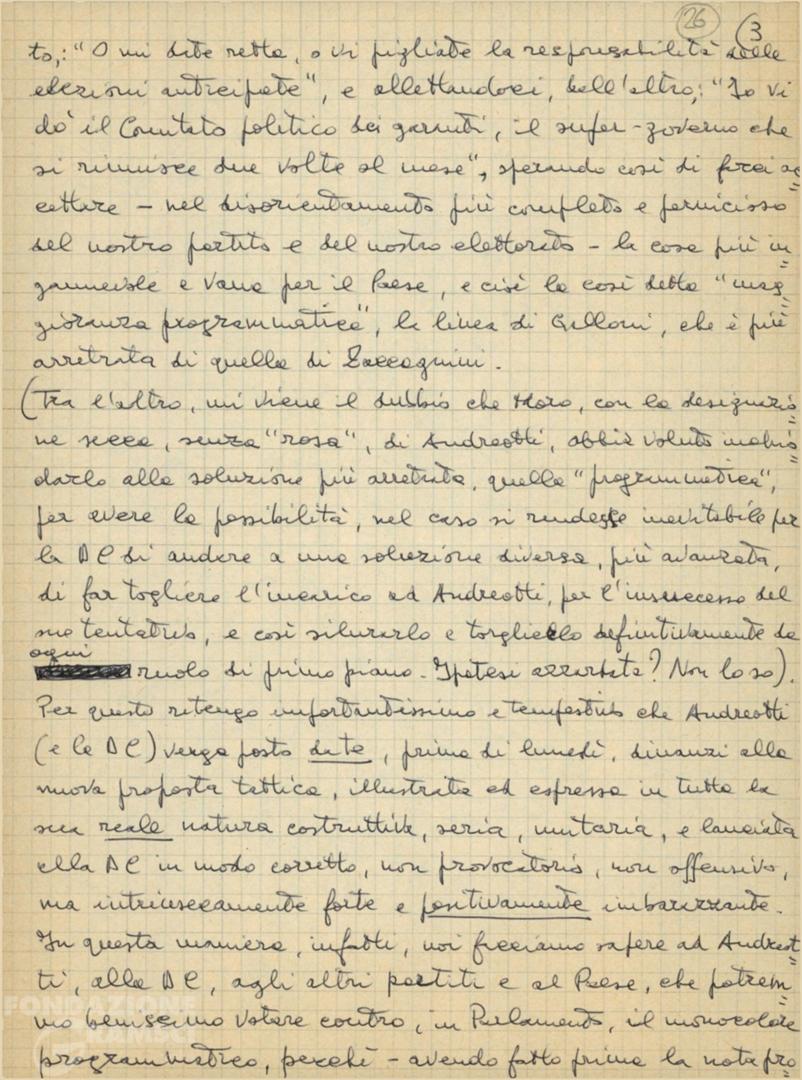 26 (3
to,: "O mi date retta, o vi pigliate la responsabilità delle
elezioni anticipate", e allettandoci, dall'altro,: "Io vi
do' il Comitato politico dei garanti, il super-governo che
si riunisce due volte al mese", sperando così di farci ac=
cettare – nel disorientamento più completo e pernicioso
del nostro partito e del nostro elettorato – la cosa più in=
gannevole e vana per il Paese, e cioè la così detta "mag=
gioranza programmatica", la linea di Galloni, che è più
arretrata di quella di Zaccagnini.
(Tra l'altro, mi viene il dubbio che Moro, con la designazio=
ne secca, senza "rosa", di Andreotti, abbia voluto inchio=
darlo alla soluzione più arretrata, quella "programmatica",
per avere la possibilità, nel caso si rendesse inevitabile per
la DC di andare a una soluzione diversa, più avanzata,
di far togliere l'incarico ad Andreotti, per l'insuccesso del
suo tentativo, e così silurarlo e toglierlo definitivamente da
ogni
ruolo di primo piano. Ipotesi azzardata? Non lo so).
Per questo ritengo importantissimo e tempestivo che Andreotti
(e la DC) venga posto data, prima di lunedì, dinanzi alla
nuova proposta tattica, illustrata ed espressa in tutta la
sua reale natura costruttiva, seria, unitaria, e lanciata
alla DC in modo corretto, non provocatorio, non offensivo,
ma intrinsecamente forte e positivamente imbarazzante.
In questa maniera, infatti, noi facciamo sapere ad Andreot=
ti, alla DC, agli altri partiti e al Paese, che potrem=
mo benissimo votare contro, in Parlamento, il monocolore
programmatico, perché – avendo fatto prima la nota pro=
FONDAZIONE